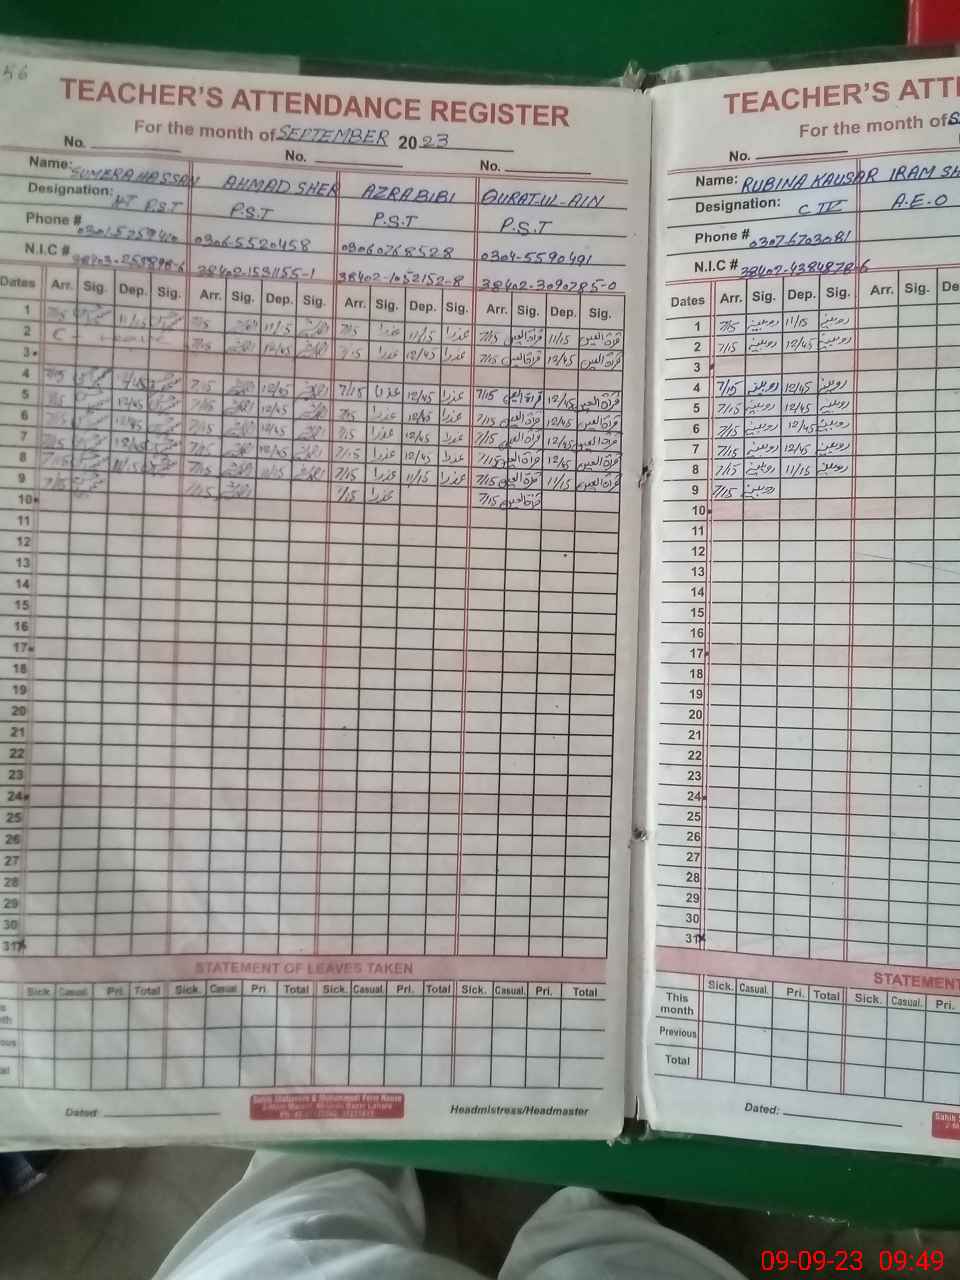 56
TEACHER'S ATTENDANCE REGISTER
For the month of SEPTEMBER 2023
No. No. No.
Name: SUMERA HASSAN AHMAD SHER AZRA BIBI QURAT-UL-AIN
Designation: HT P.S.T P.S.T P.S.T P.S.T
Phone # 0306-5520458 03060768528 0304-5590491
N.I.C # 38402-1531155-1 38402-1052152-8 38402-3090785-0
Dates Arr. Sig. Dep. Sig. Arr. Sig. Dep. Sig. Arr. Sig. Dep. Sig. Arr. Sig. Dep. Sig.
1 7/15 11/15 7/15 11/15 7/15 عذرا 11/15 عذرا 7/15 قرۃ العین 11/15 قرۃ العین
2 C 7/15 12/45 7/15 عذرا 12/45 عذرا 7/15 قرۃ العین 12/45 قرۃ العین
3
4 7/15 12/45 7/15 12/45 7/15 عذرا 12/45 عذرا 7/15 قرۃ العین 12/45 قرۃ العین
5 7/15 12/45 7/15 12/45 7/15 عذرا 12/45 عذرا 7/15 قرۃ العین 12/45 قرۃ العین
6 7/15 12/45 7/15 12/45 7/15 عذرا 12/45 عذرا 7/15 قرۃ العین 12/45 قرۃ العین
7 7/15 12/45 7/15 12/45 7/15 عذرا 12/45 عذرا 7/15 قرۃ العین 12/45 قرۃ العین
8 7/15 11/15 7/15 11/15 7/15 عذرا 11/15 عذرا 7/15 قرۃ العین 11/15 قرۃ العین
9 7/15 7/15 7/15 عذرا 7/15 قرۃ العین
10
11
12
13
14
15
16
17
18
19
20
21
22
23
24
25
26
27
28
29
30
31
STATEMENT OF LEAVES TAKEN
Sick Casual. Pri. Total Sick. Casual. Pri. Total Sick. Casual. Pri. Total Sick. Casual. Pri. Total
Dated: Headmistress/Headmaster
TEACHER'S ATTE
For the month of
No.
Name: RUBINA KAUSAR IRAM SH
Designation: C IV A.E.O
Phone # 0307-6703081
N.I.C # 38402-4384878-6
Dates Arr. Sig. Dep. Sig. Arr. Sig. De
1 7/15 روبینہ 11/15 روبینہ
2 7/15 روبینہ 12/45 روبینہ
3
4 7/15 روبینہ 12/45 روبینہ
5 7/15 روبینہ 12/45 روبینہ
6 7/15 روبینہ 12/45 روبینہ
7 7/15 روبینہ 12/45 روبینہ
8 7/15 روبینہ 11/15 روبینہ
9 7/15 روبینہ
10
11
12
13
14
15
16
17
18
19
20
21
22
23
24
25
26
27
28
29
30
31
STATEMENT
Sick. Casual. Pri. Total Sick. Casual. Pri.
This month
Previous
Total
Dated:
09-09-23 09:49